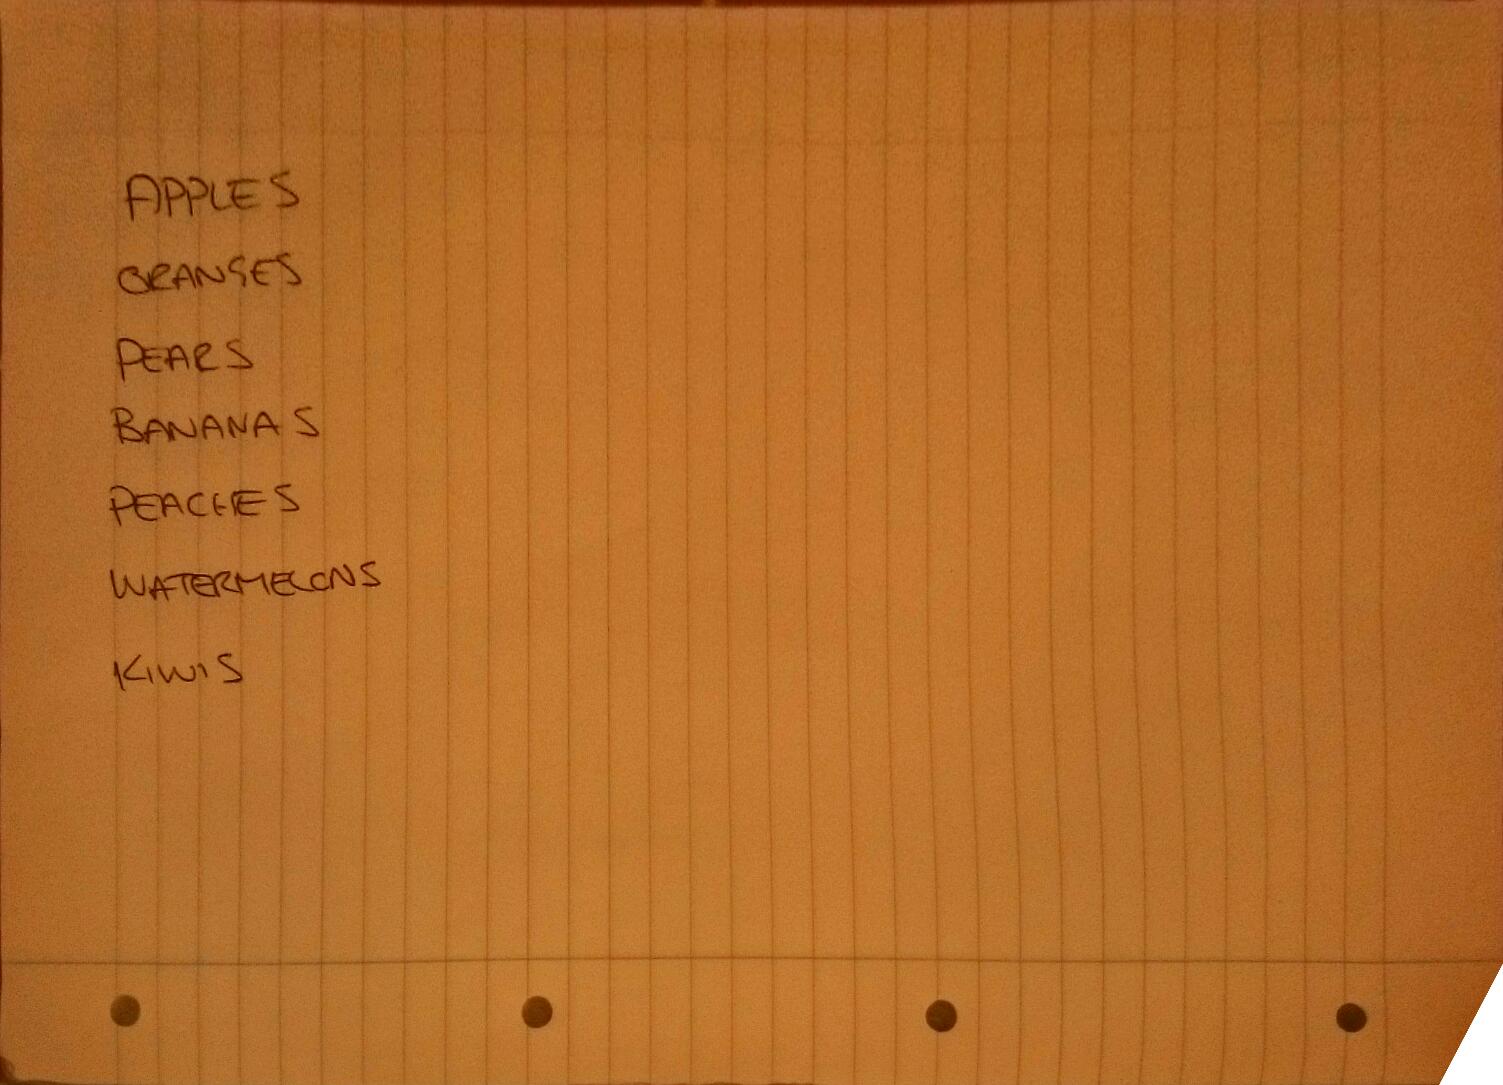 APPLES
ORANGES
PEARS
BANANAS
PEACHES
WATERMELONS
KIWIS